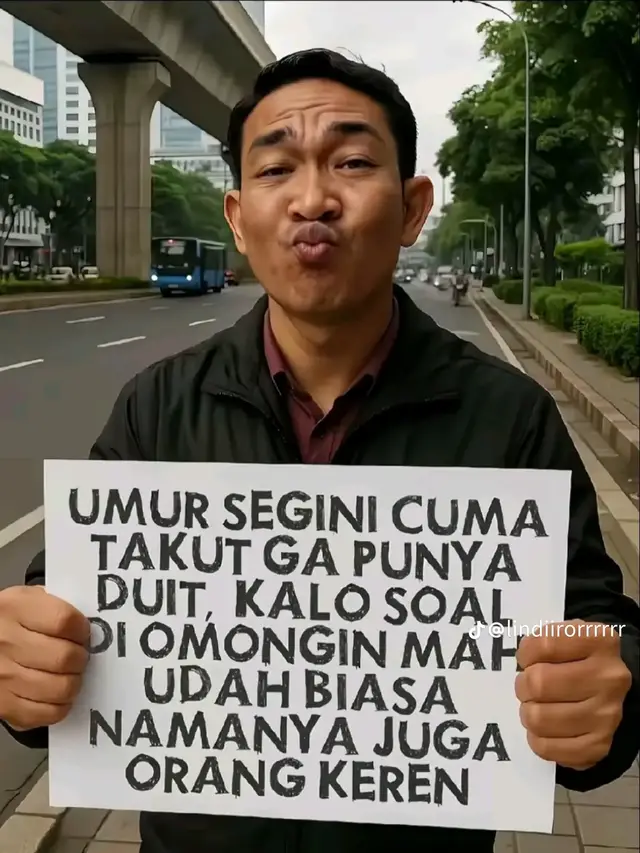 UMUR SEGINI CUMA
TAKUT GA PUNYA
DUIT, KALO SOAL
DI OMONGIN MAH
@lindiirorrrrrr
UDAH BIASA
NAMANYA JUGA
ORANG KEREN